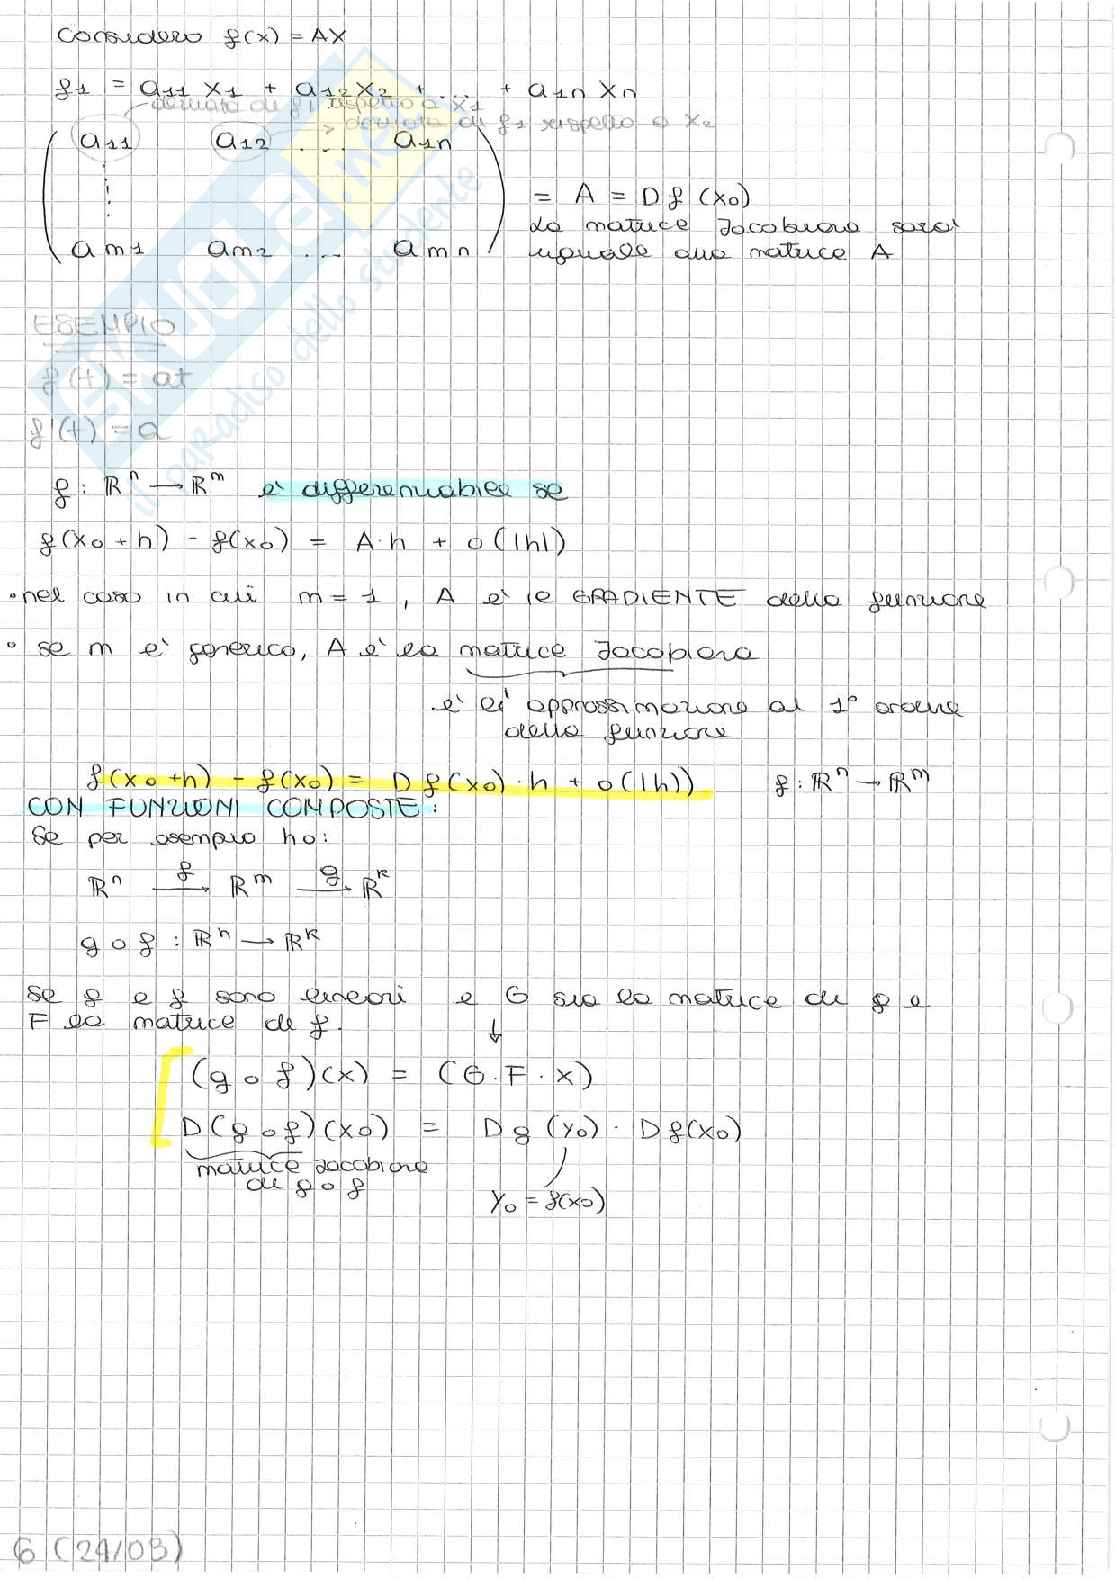 Considero f(x) = AX
f1 = a11 x1 + a12 x2 + ... + a1n xn
derivata di f1 rispetto a x1
derivata di f1 rispetto a x2
a11 a12 ... a1n
= A = Df(x0)
La matrice Jacobiana sarà
am1 am2 ... amn
uguale alla matrice A
ESEMPIO
f(t) = at
f'(t) = a
f: ℝⁿ → ℝᵐ è differenziabile se
f(x0+h) - f(x0) = A·h + o(|h|)
• nel caso in cui m=1, A è il GRADIENTE della funzione
• se m è generico, A è la matrice Jacobiana
è l'approssimazione al 1° ordine
della funzione
f(x0+h) - f(x0) = Df(x0)·h + o(|h|) f: ℝⁿ → ℝᵐ
CON FUNZIONI COMPOSTE:
Se per esempio ho:
ℝⁿ f→ ℝᵐ g→ ℝᵏ
g∘f : ℝⁿ → ℝᵏ
se g e f sono lineari e G sia la matrice di g e
F la matrice di f.
↓
(g∘f)(x) = (G·F·x)
D(g∘f)(x0) = Dg(y0)·Df(x0)
matrice Jacobiana
di g∘f
y0 = f(x0)
6 (24/03)
SKUOLA.net
il paradiso dello studente